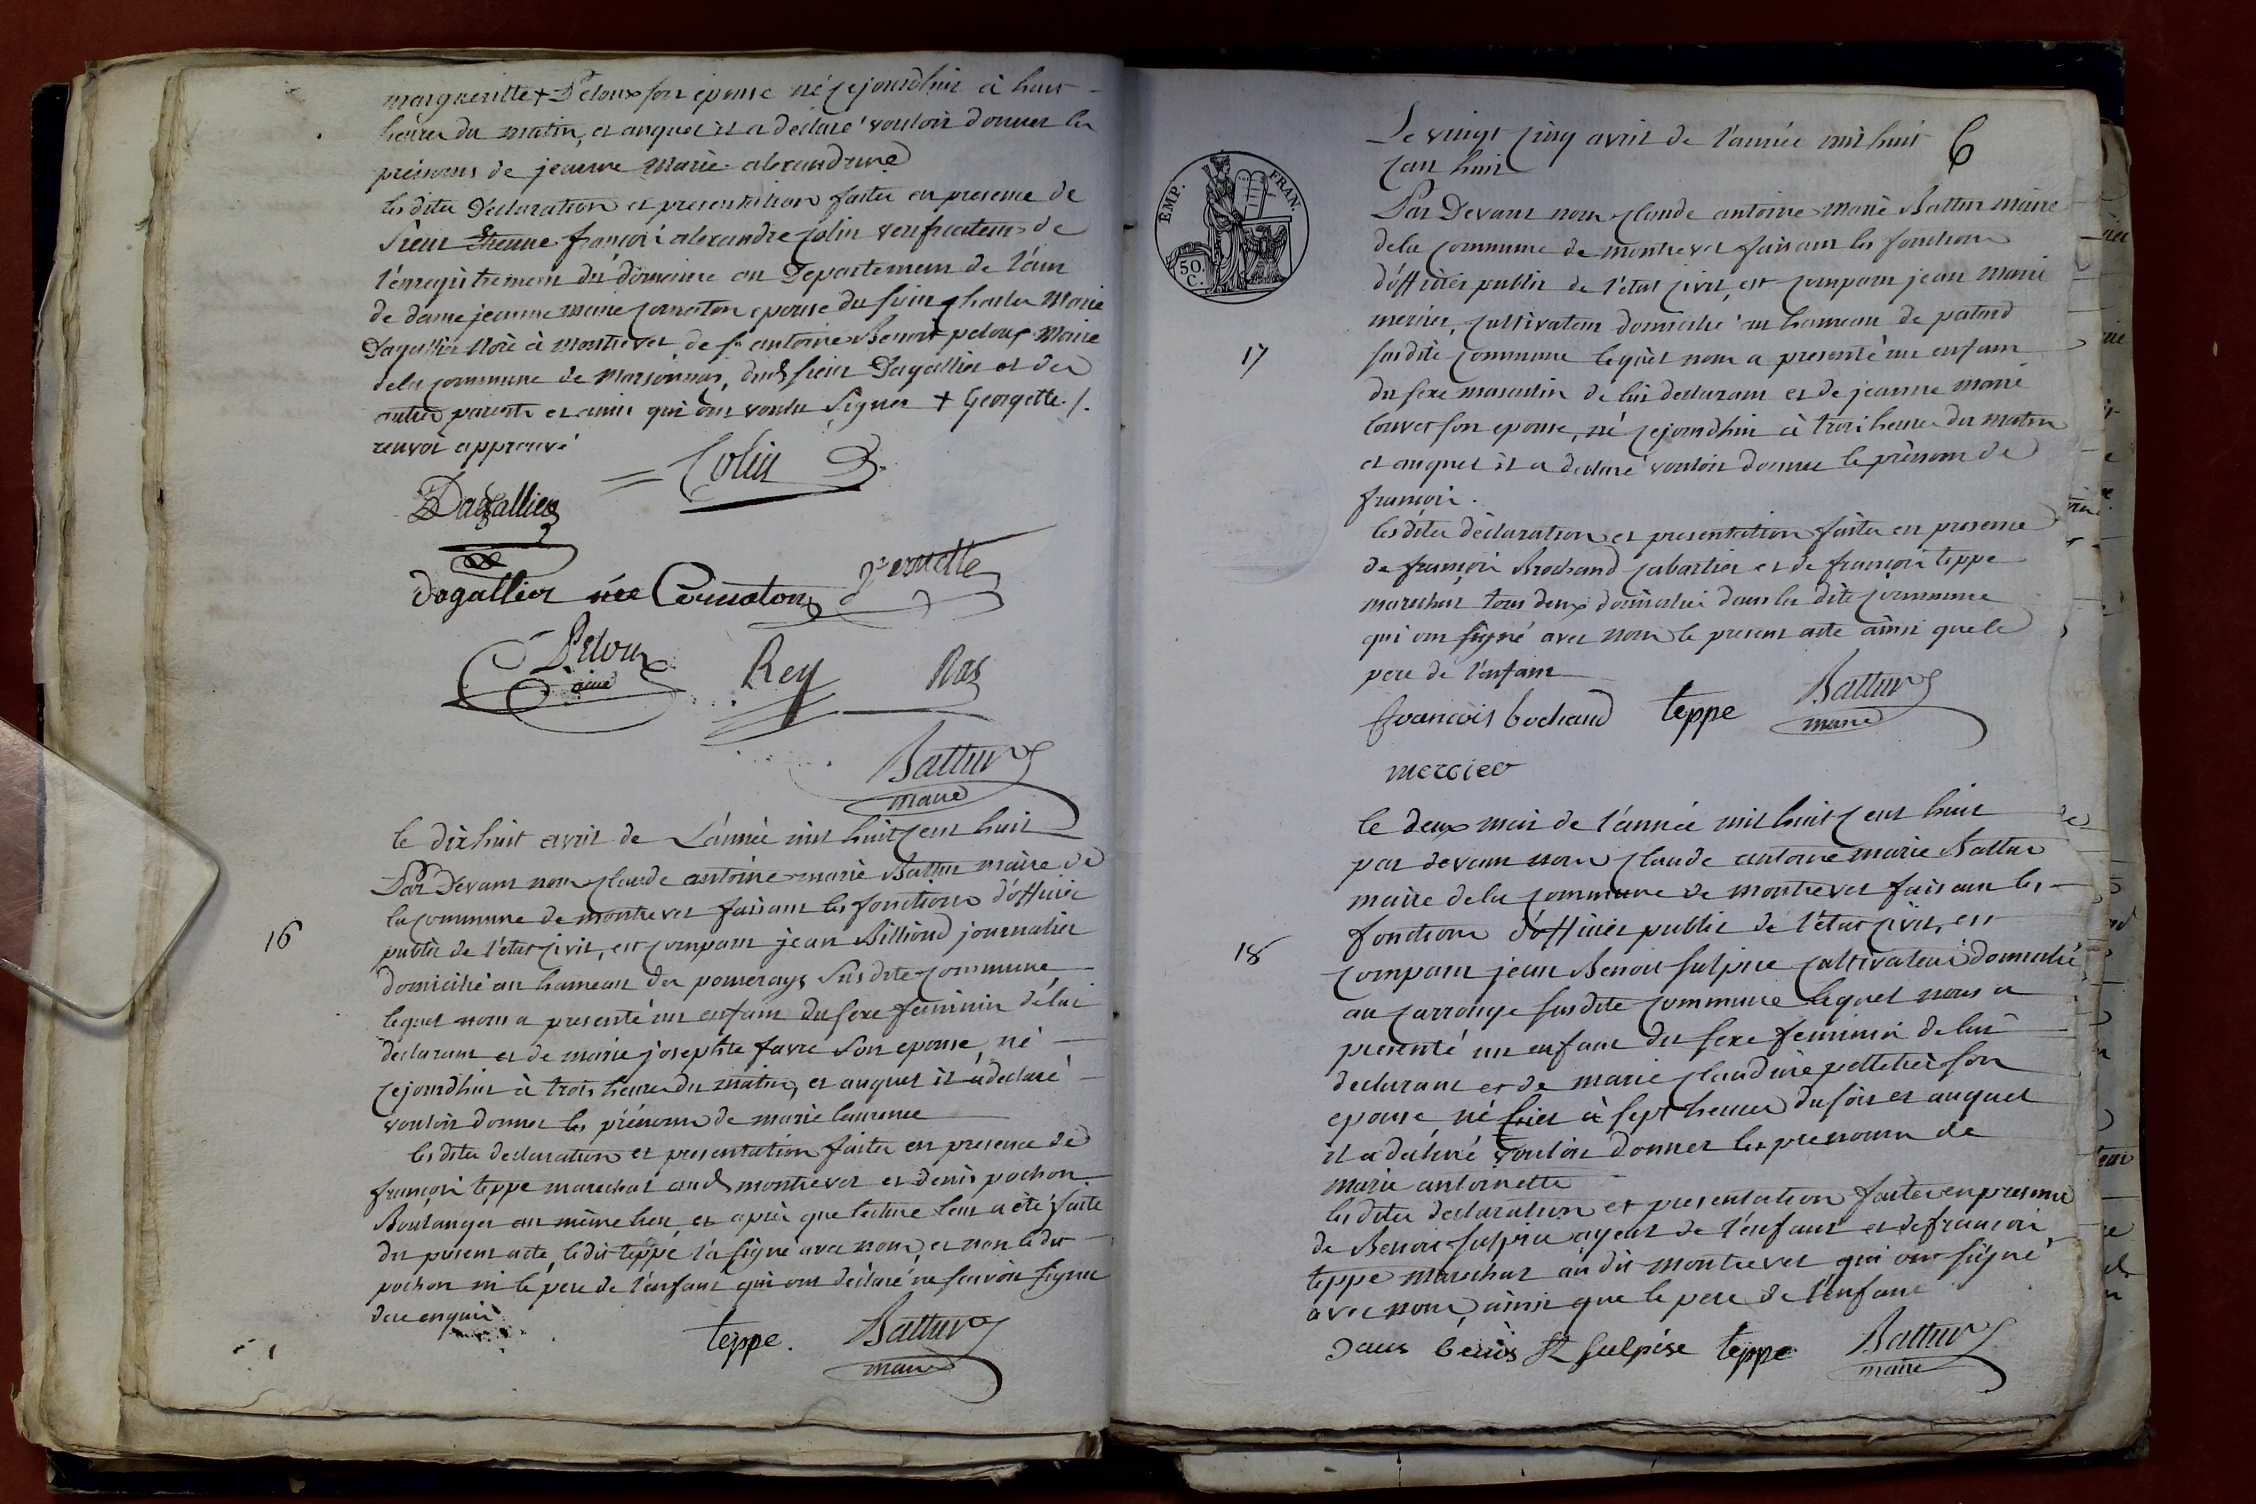 margueritte + Peloux son epouse né cejourdhui à huit
heures du matin, et auquel il a declaré vouloir donner les
prénoms de jeanne marie alexandrine
lesdites declaration et presentation faites en presence de
Sieur Etienne françois alexandre Colin verificateur de
l'enregistrement du domaine au Departement de l'ain
de dame jeanne marie cornaton epouse du sieur charles Marie
Dagallier Nore à montrevel, de sr antoine Benoit peloux Maire
dela commune de marsonnas, dud sieur Dagallier et des
autres parents et amis qui ont voulu signer + Georgette /.
renvoi approuvé
Colin
Dagallier
dagallier née Cornaton
Peloux
ainé
Rey
Ras
Battur
maire
le dix huit avril de L'année mil huit cent huit
Par Devant nous claude antoine marie Battur maire de
la commune de montrevel faisant les fonctions d'officier
16
public de l'etat civil, est comparu jean Billioud journalier
domicilié au hameau des pomerays susdite commune,
lequel nous a presenté un enfant du sexe feminin de lui
declarant et de marie josephte favre son epouse, né
cejourdhui à trois heures du matin, et auquel il a declaré
vouloir donner les prénoms de marie laurence
lesdites declaration et presentation faites en presence de
françois teppe marechal aud montrevel et denis pochon
Boulanger au même lieu, et après que lecture leur a été faite
du present acte, ledit teppe l'a signé avec nous, et non ledit
pochon ni le pere de l'enfant qui ont déclaré ne scavoir signer
de ce enquis
teppe.
Battur
maire
Le vingt cinq avril de l'année mil huit
6
cent huit
EMP. FRAN.
50. C.
Par Devant nous claude antoine marie Battur maire
dela commune de montrevel faisant les fonctions
d'officier public de l'etat civil, est comparu jean marie
mercier, cultivateur domicilié au hameau de
17
susdite commune lequel nous a presenté un enfant
du sexe masculin de lui declarant et de jeanne marie
louvet son epouse, né cejourdhui à trois heures du matin
et auquel il a declaré vouloir donner le prénom de
françois.
lesdites déclaration et presentation faites en presence
de françois Brochand cabartier et de françois teppe
marechal tous deux domiciliés dans la dite commune
qui ont signé avec nous le present acte ainsi que le
pere de l'enfant
francois bochand
teppe
Battur
maire
mercier
le deux mai de l'année mil huit cent huit
par devant nous claude antoine marie Battur
maire dela commune de montrevel faisant les
fonctions d'officier public de l'etat civil, est
18
comparu jean Benoit sulpice cultivateur domicilié
au carrouge susdite commune lequel nous a
presenté un enfant du sexe feminin de lui
declarant et de marie claudine pelletier son
epouse, né hier à sept heures du soir et auquel
il a déclaré vouloir donner les prenoms de
marie antoinette
lesdites declaration et presentation faites en presence
de Benoit sulpice ayeul de l'enfant et de françois
teppe marechal audit montrevel qui ont signé
avec nous, ainsi que le pere de l'enfant
sulpise
teppe
Battur
maire